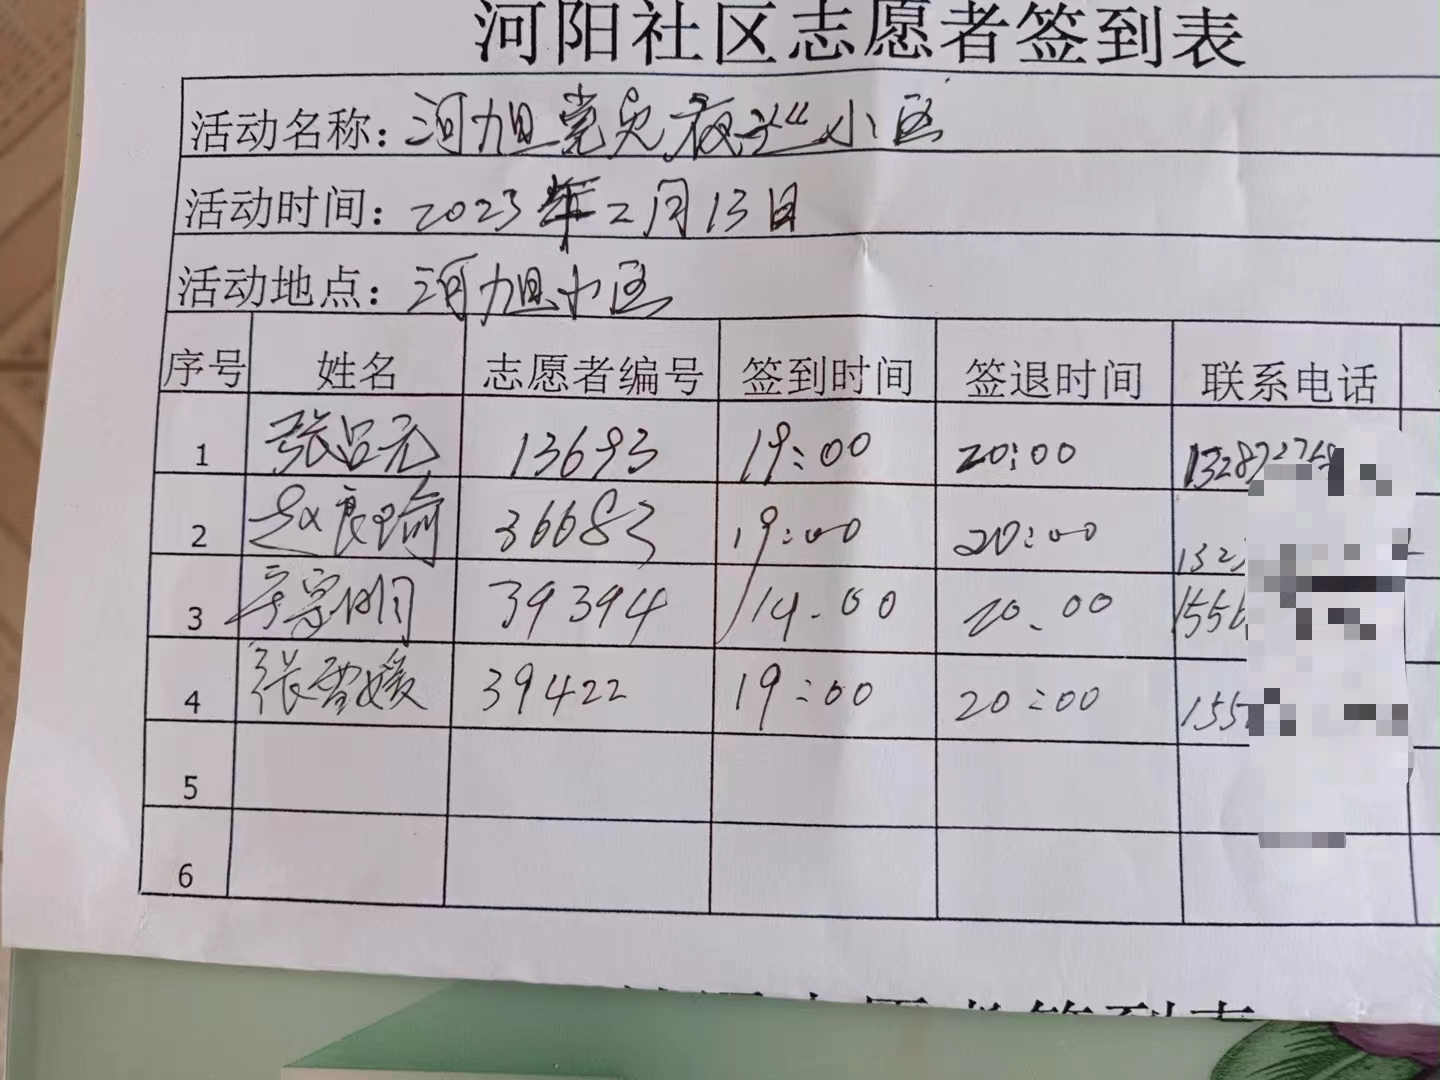 河阳社区志愿者签到表
活动名称：河旭党员夜巡小区
活动时间：2023年2月13日
活动地点：河旭小区
序号 姓名 志愿者编号 签到时间 签退时间 联系电话
1 张吕元 13693 19:00 20:00 132872768
2 赵良瑜 36683 19:00 20:00 1323
3 辛宗明 39394 19.00 20.00 1556
4 张雪媛 39422 19:00 20:00 155
5
6